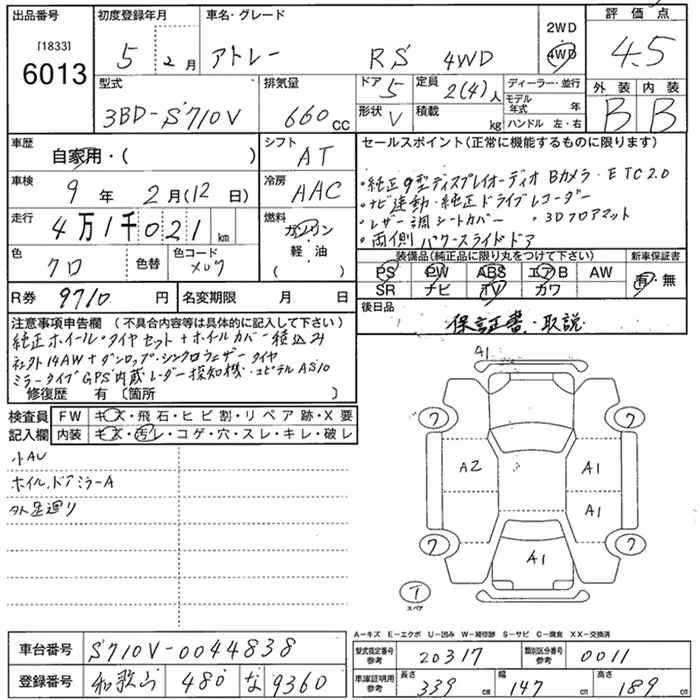 出品番号 初度登録年月 車名・グレード 2WD 評価点
[1833] 5 2月 アトレー RS 4WD 4WD 4.5
6013
型式 排気量 ドア 5 定員 2(4)人 ディーラー・並行 外装 内装
3BD-S710V 660cc 形状 V 積載 kg モデル年式 年 B B
ハンドル 左・右
車歴 自家用・( ) シフト AT セールスポイント(正常に機能するものに限ります)
・純正9型ディスプレイオーディオ Bカメラ・ETC2.0
車検 9年 2月(12日) 冷房 AAC ・ナビ連動・純正ドライブレコーダー
・レザー調シートカバー ・3Dフロアマット
走行 4万1千021km 燃料 ガソリン・軽油( ) ・両側パワースライドドア
色 クロ 色替 色コード X07 装備品(純正品に限り丸をつけて下さい) 新車保証書
PS PW ABS エアB AW 有・無
SR ナビ TV カワ
R券 9710円 名変期限 月 日 後日品
保証書・取説
注意事項申告欄 (不具合内容等は具体的に記入して下さい)
純正ホイール・タイヤセット+ホイルカバー積込み
社外14AW+ダンロップ・シンクロウェザータイヤ
ミラータイプGPS内蔵レーダー探知機・ユピテルAS10
修復歴 有 〔箇所 〕
検査員 FW キズ・飛石・ヒビ割・リペア跡・X要
記入欄 内装 キズ・汚レ・コゲ・穴・スレ・キレ・破レ
小AU
ホイル、ドアミラーA
外足廻り
A1
ワ ワ
A2 A1
A1
ワ ワ
A1
T
スペア
A-キズ E-エクボ U-凹み W-補修跡 S-サビ C-腐食 XX-交換済
車台番号 S710V-0044838 型式指定番号 参考 20317 類別区分番号 参考 0011
登録番号 和歌山 480 な 9360 車庫証明用 参考 長さ 339cm 幅 147cm 高さ 189cm